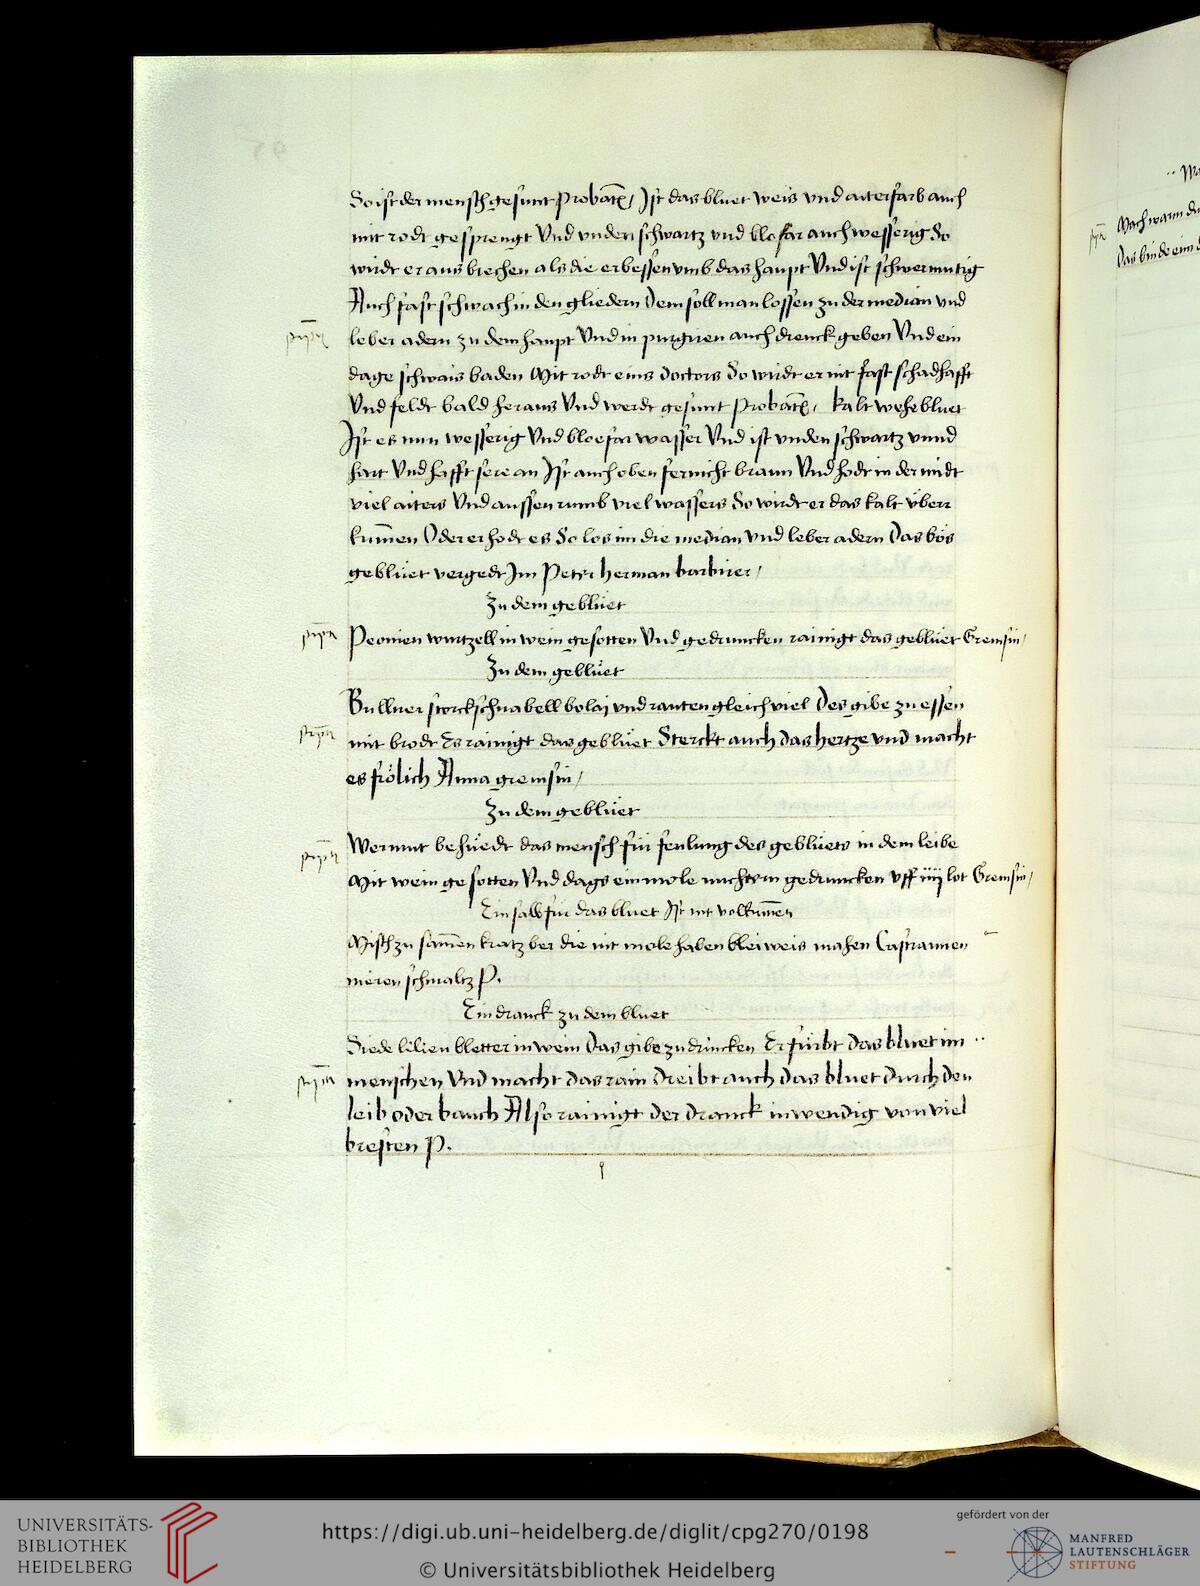 So ist der mensch gesunt probatũ / Ist das bluet weis vnd aiterfarb auch
mit rodt gesprengt Vnd vnden schwartz vnd blofar auch wesserig So
wirdt er aus brechen als die erbessen vmb das haupt Vnd ist schwermutig
Auch fast schwach in den gliedern Dem soll man lossen zu der median vnd
leber adern zu dem haupt Vnd in purgiren auch drenck geben Vnd ein
dage schwais baden Mit rodt eins doctors So wirdt er nit fast schadhafft
Vnd feldt bald heraus Vnd werdt gesunt probatũ / kalt wehe bluet
Ist es nun wesserig Vnd bloefar wasser Vnd ist vnden schwartz vnnd
hart Vnd hafft sere an Ist auch oben fernicht braun Vnd hodt in der midt
viel aiters Vnd aussen rumb viel wassers So wirdt er das kalt vberr
kum̃en Oder er hodt es So los im die median vnd leber adern Das bös
gebluet vergedt Im Peter herman barbirer /
Zu dem gebluet
Peonien wurtzell in wein gesotten Vnd gedruncken rainigt das gebluet Gremsin /
Zu dem gebluet
Bullner storckschnabell bolaj vnd rauten gleich viel Des gibe zu essen
mit brodt Es rainigt das gebluet Sterckt auch das hertze vnd macht
es frölich Anna gremsin /
Zu dem gebluet
Wermut behuedt das mensch fur feulung des gebluets in dem leibe
Mit wein gesotten Vnd dags ein mole nuchtern gedruncken vff iiij lot Gremsin /
Ein salb fur das bluet Ist nit volkum̃en
Misch zu sam̃en kratz ber die nit mole haben bleiweis mahen Castraunen
nieren schmaltz P.
Ein dranck zu dem bluet
Siede lilien bletter in wein Das gibe zu drincken Er furbt das bluet im
menschen Vnd macht das rain Dreibt auch das bluet durch den
leib oder bauch Also rainigt der dranck inwendig von viel
bresten P.
Mach warm
Das binde ein
UNIVERSITÄTS-
BIBLIOTHEK
HEIDELBERG
https://digi.ub.uni-heidelberg.de/diglit/cpg270/0198
© Universitätsbibliothek Heidelberg
gefördert von der
MANFRED
LAUTENSCHLÄGER
STIFTUNG